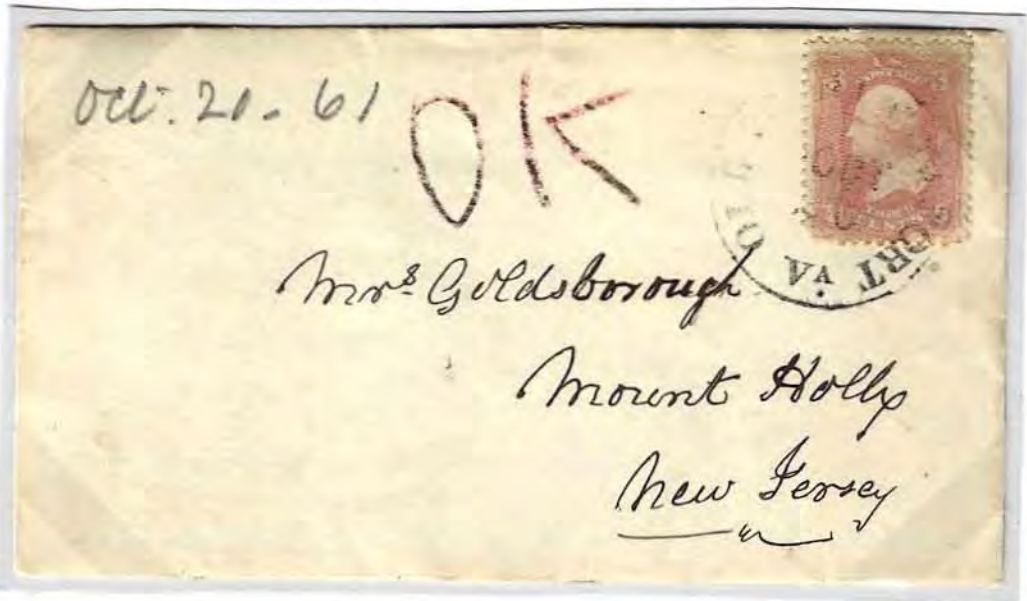 Oct. 20 - 61
OK
Mrs Goldsborough
Mount Holly
New Jersey
ORT VA
3